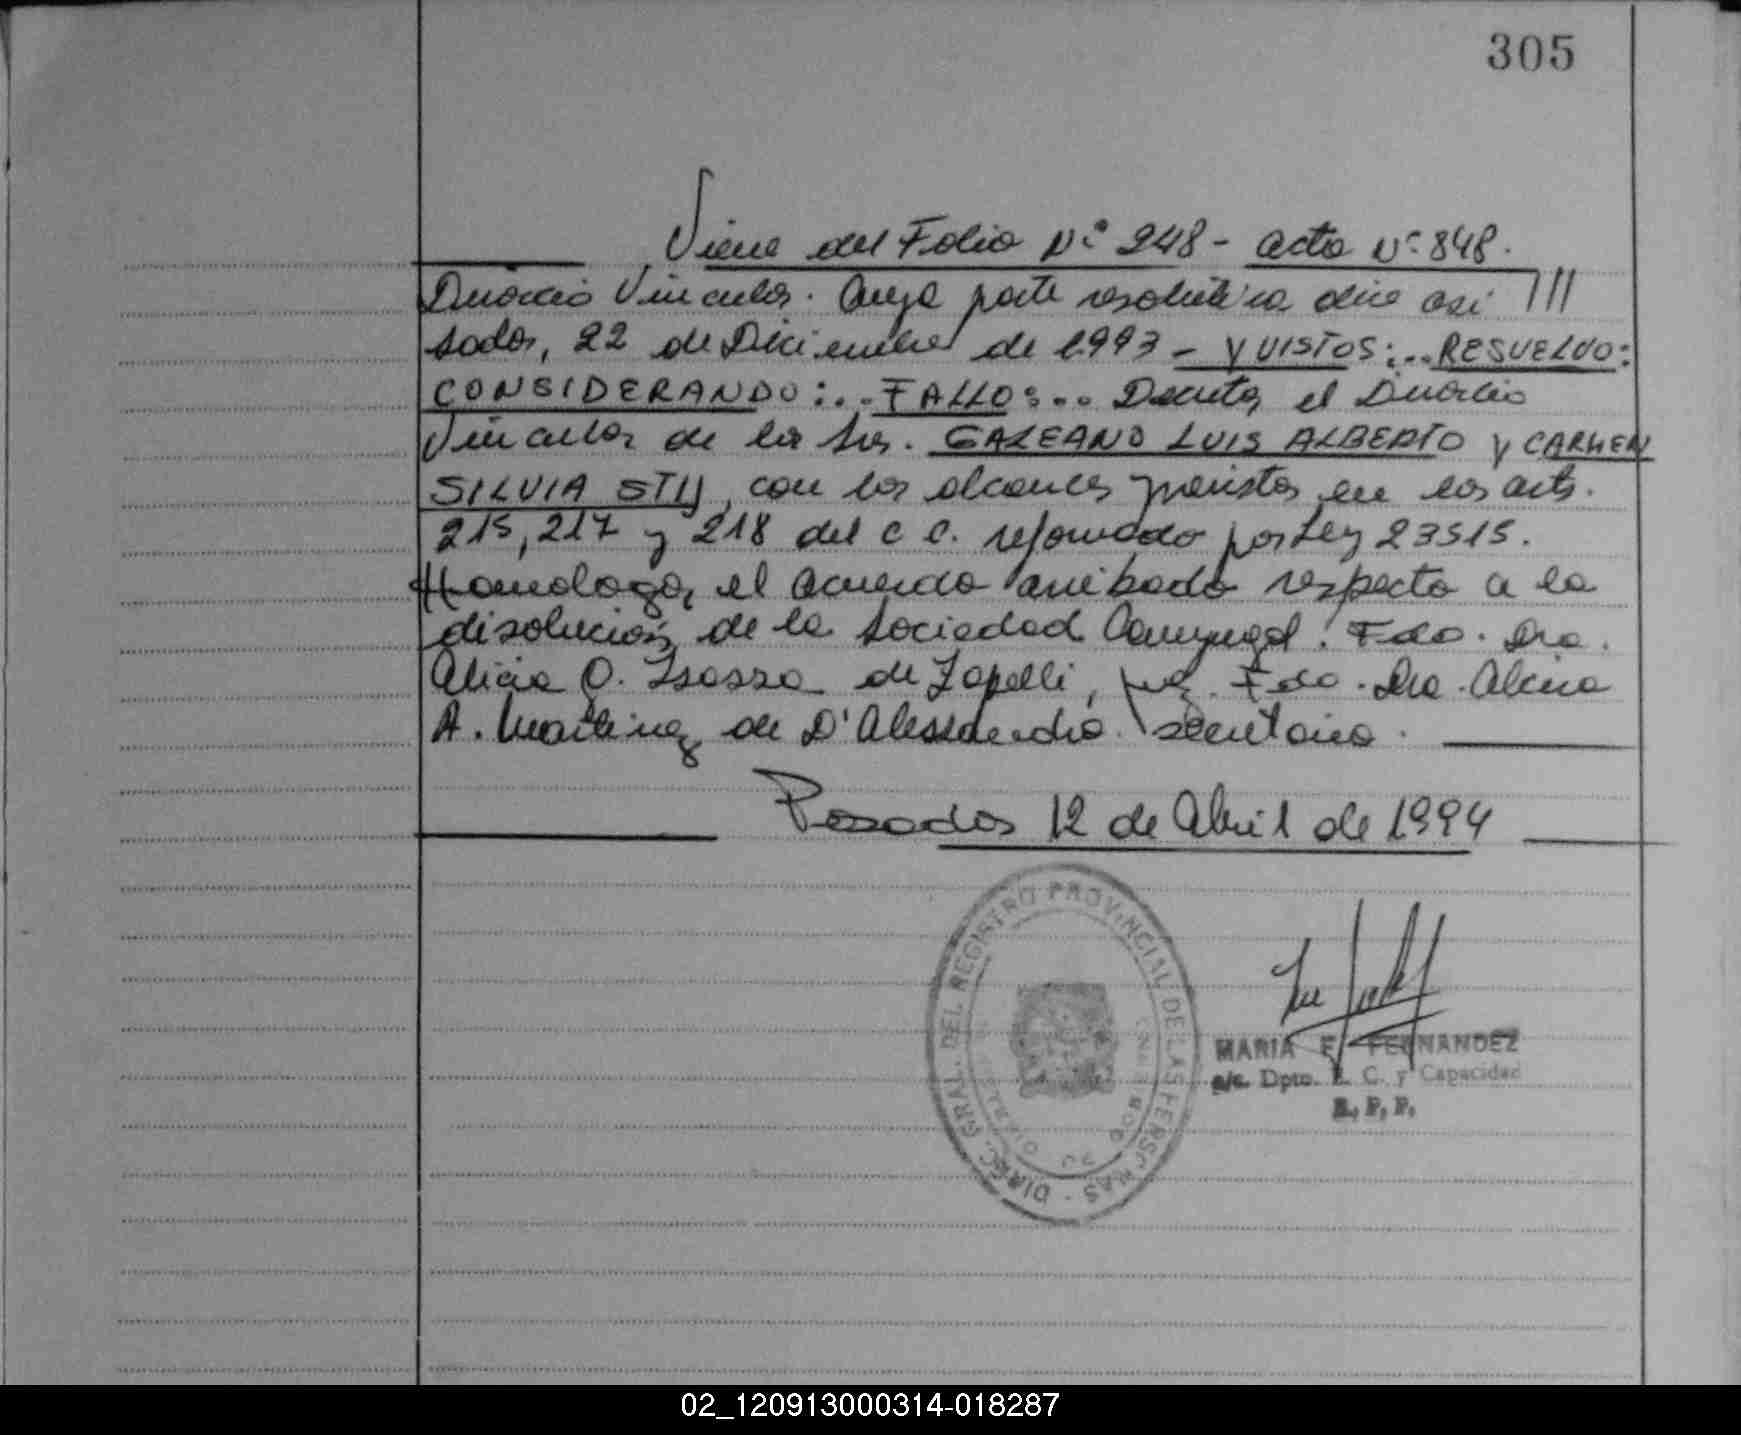 305
Viene del Folio Nº 248 - acta Nº 848.
Divorcio Vincular. Cuya parte resolutiva dice así ///
sadas, 22 de Diciembre de 1993 - Y VISTOS:... RESUELVO:
CONSIDERANDO:... FALLO:... Decretar el Divorcio
Vincular de los Sres. GALEANO LUIS ALBERTO y CARMEN
SILVIA STIJ, con los alcances previstos en los arts.
215, 217 y 218 del C C. reformado por Ley 23515.
Homologar el acuerdo arribado respecto a la
disolución de la Sociedad Conyugal. Fdo. Dra.
Alicia O. de Zapelli, Juez. Fdo. Dra. Alicia
A. Martinez de D'Alessandro. Secretaria.
Posadas 12 de Abril de 1994
DIREC. GRAL. DEL REGISTRO PROVINCIAL DE LAS PERSONAS -
MARIA E. FERNANDEZ
a/c. Dpto. E. C. y Capacidad
R. P. P.
02_120913000314-018287